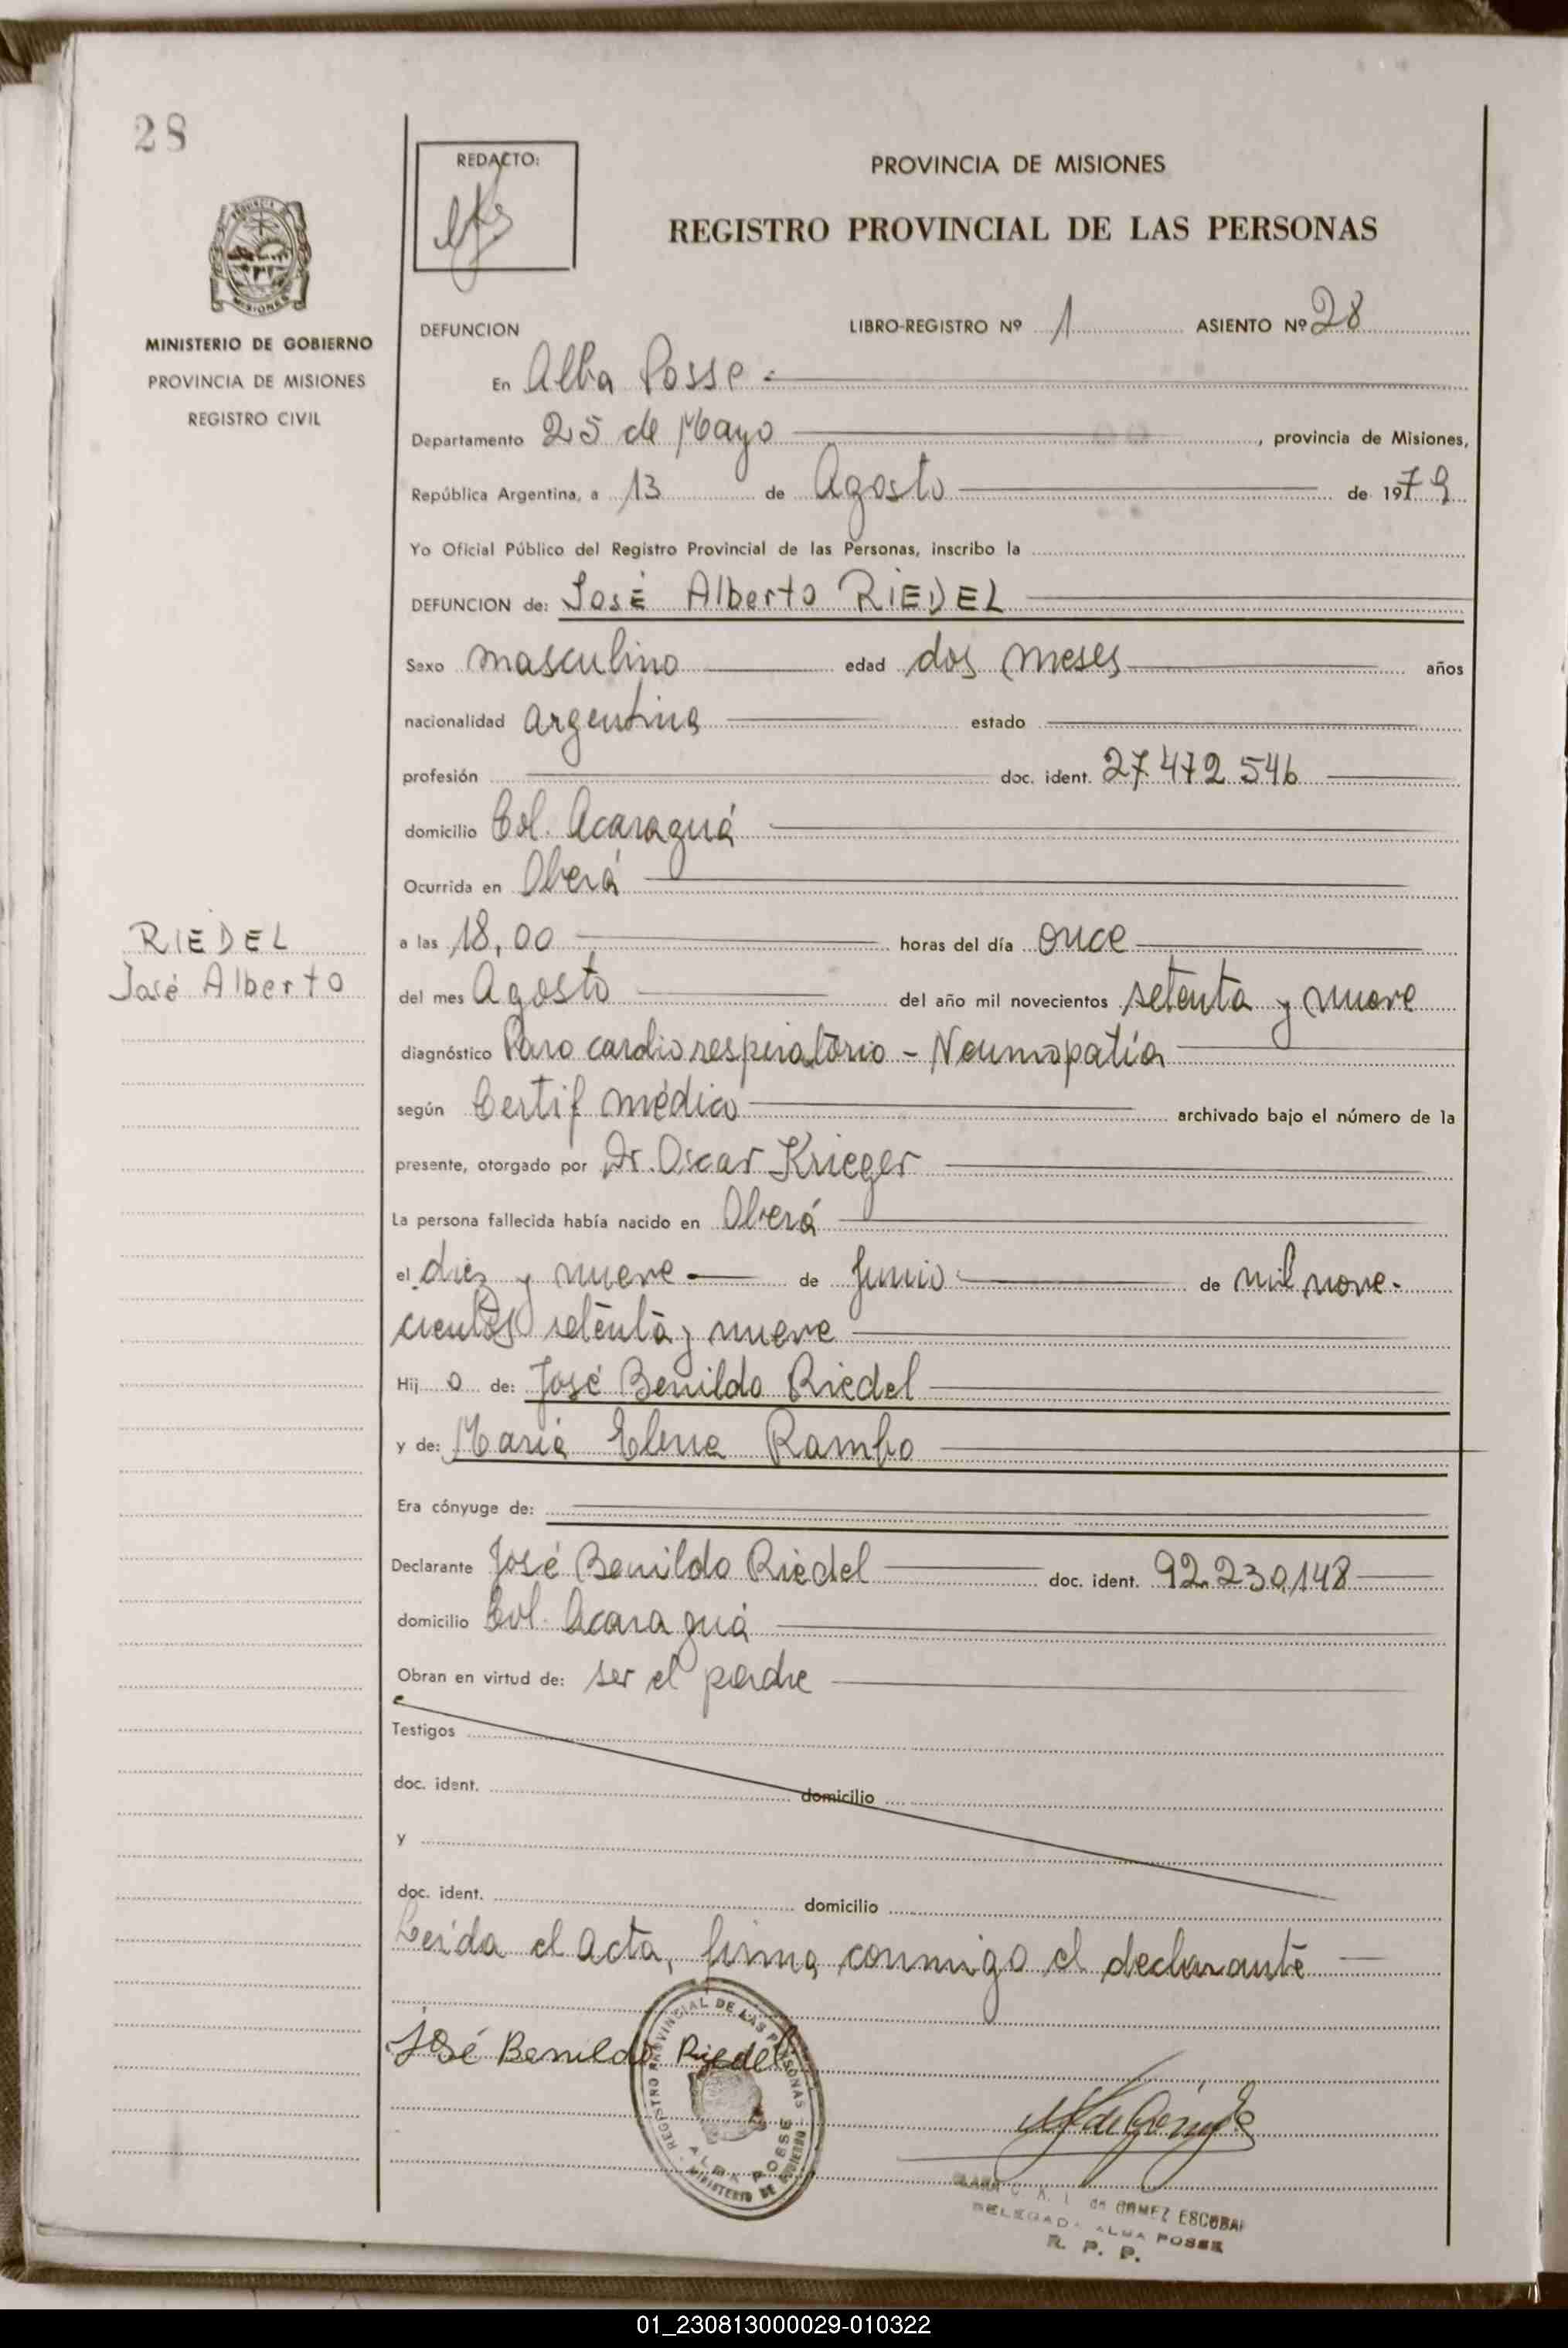 28
REDACTO:
PROVINCIA DE MISIONES
REGISTRO PROVINCIAL DE LAS PERSONAS
MISIONES
MINISTERIO DE GOBIERNO
PROVINCIA DE MISIONES
REGISTRO CIVIL
DEFUNCION LIBRO-REGISTRO Nº 1 ASIENTO Nº 28
En Alba Posse
Departamento 25 de Mayo , provincia de Misiones,
República Argentina, a 13 de Agosto de 1979
Yo Oficial Público del Registro Provincial de las Personas, inscribo la
DEFUNCION de: José Alberto RIEDEL
Sexo masculino edad dos meses años
nacionalidad argentina estado
profesión doc. ident. 27.472.546
domicilio Col. Acaraguá
Ocurrida en Oberá
RIEDEL
José Alberto
a las 18,00 horas del día once
del mes Agosto del año mil novecientos setenta y nueve
diagnóstico Paro cardiorespiratorio - Neumopatía
según Certif médico archivado bajo el número de la
presente, otorgado por Dr. Oscar Krieger
La persona fallecida había nacido en Oberá
el diez y nueve de Junio de mil nove-
cientos setenta y nueve
Hijo de: José Benildo Riedel
y de: Maria Elena Rambo
Era cónyuge de:
Declarante José Benildo Riedel doc. ident. 92.230.148
domicilio Col. Acaraguá
Obran en virtud de: ser el padre
Testigos
doc. ident. domicilio
y
doc. ident. domicilio
Leida el acta, firma conmigo el declarante
José Benildo Riedel
REGISTRO PROVINCIAL DE LAS PERSONAS
ALBA POSSE
MINISTERIO DE GOBIERNO
de GOMEZ ESCOBAR
DELEGADA ALBA POSSE
R. P. P.
01_230813000029-010322